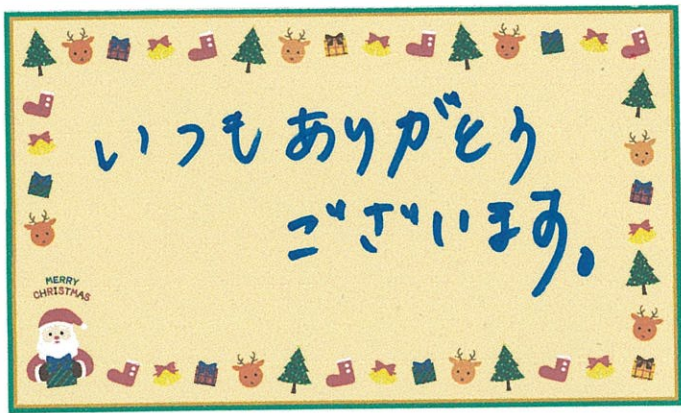 いつもありがとう
ございます。
MERRY
CHRISTMAS